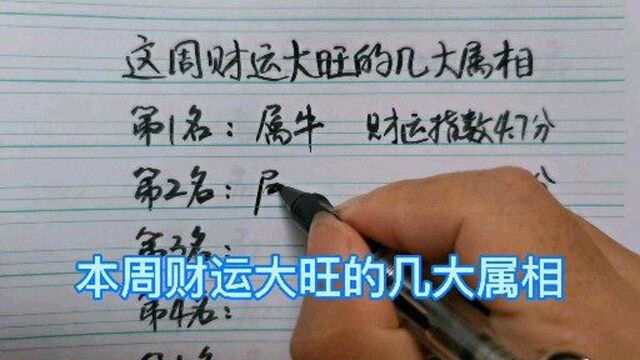 这周财运大旺的几大属相
第1名：属牛 财运指数4.7分
第2名： 分
第3名：
本周财运大旺的几大属相
第4名：